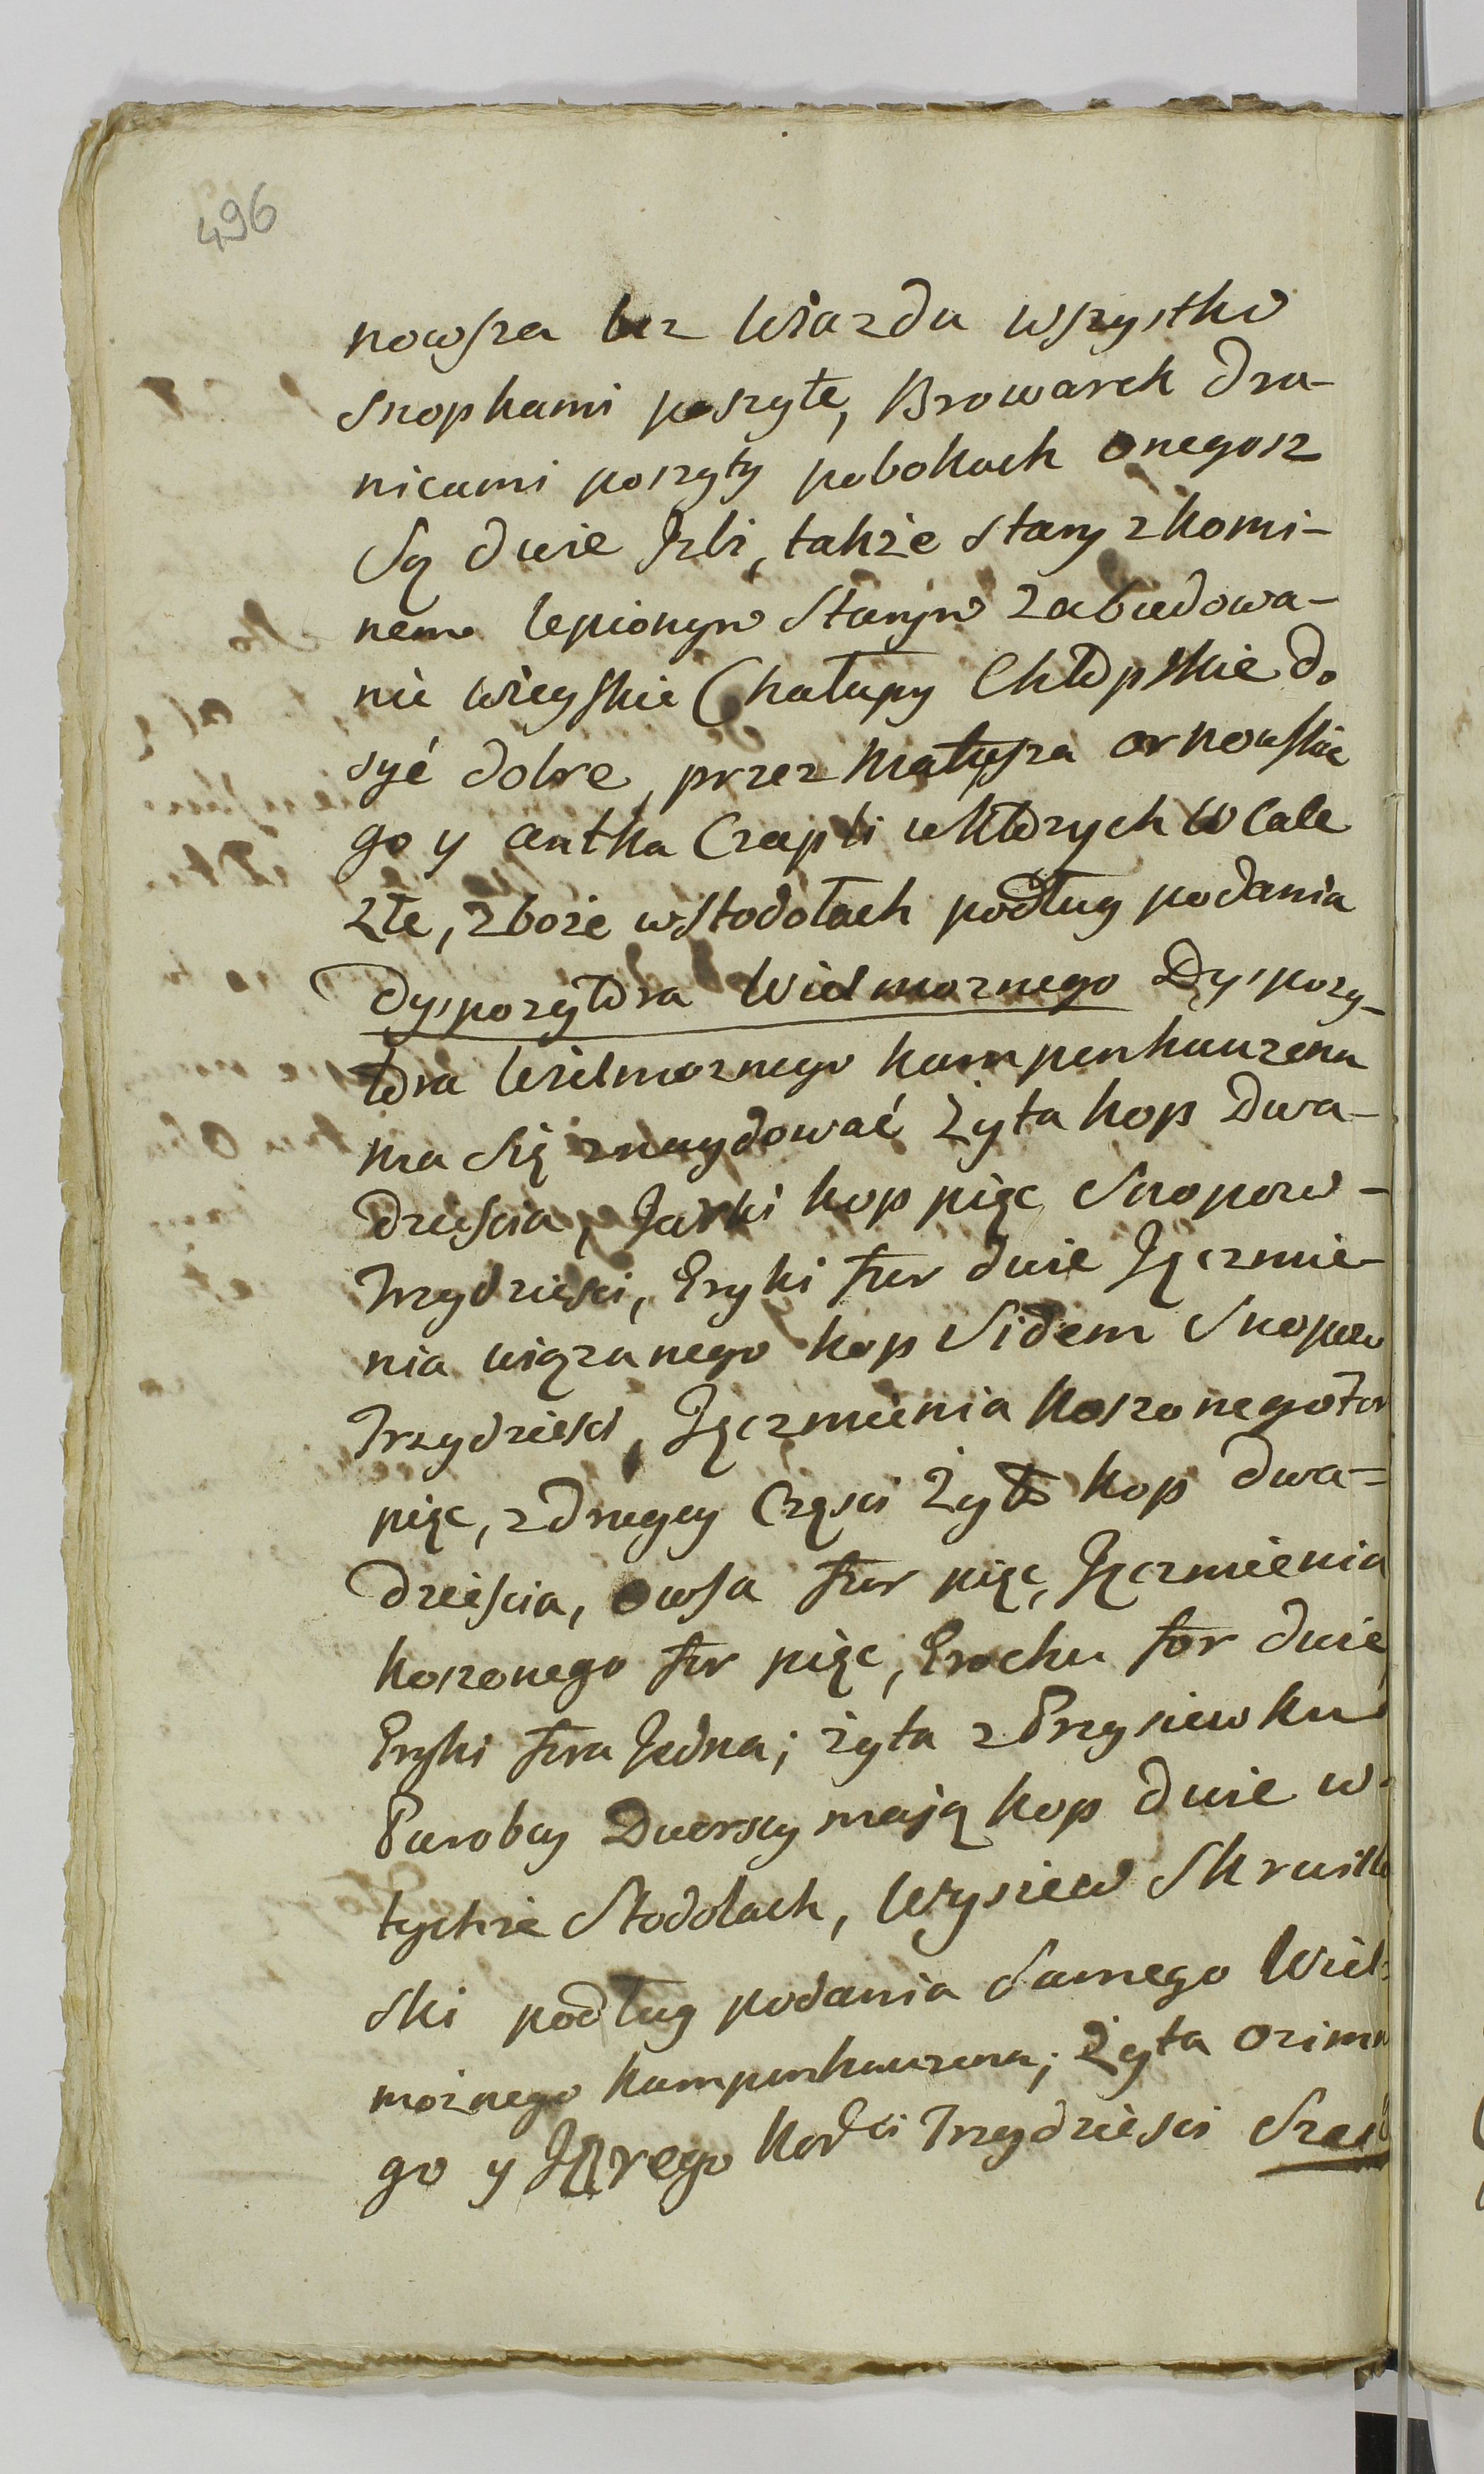 496
nowsza bez Wiazdu wszystko
snopkami poszyte, Browarek dra-
nicami poszyty pobokach onegosz
Są dwie Izbi, także stary zkomi-
nem lepionym Starym zabudowa-
nie wieyskie Chałupy Chłopskie do
syć dobre, przez Matysza
go y antka Czapli wktorych wcale
złe, zboże wstodołach podług podania
Dyspozytora Wielmoznego Dyspozy-
tora Wielmoznego kampenhauzena
ma się znaydować Zyta kop Dwa-
dziescia, Jarki kop pięc Snopow -
Trzydziesci, Gryki fur dwie Jęczmie-
nia wiązanego kop Sidem Snopow
Trzydziesci, Jęczmienia koszonego for
pięc, zdrugey Częsci Zyto kop dwa=
dzieiscia, owsa fur pięc, Jęczmienia
koszonego fur pięc, Grochu for dwie
Gryki fura Jedna; żyta z Przysiewku
Parobcy Dworscy mają kop dwie w-
tychże Stodołach, Wysiew
ski podług podania Samego Wiel-
możnego kampenhauzena; Żyta ozim
go y Jarego Trzydziesci Szesć